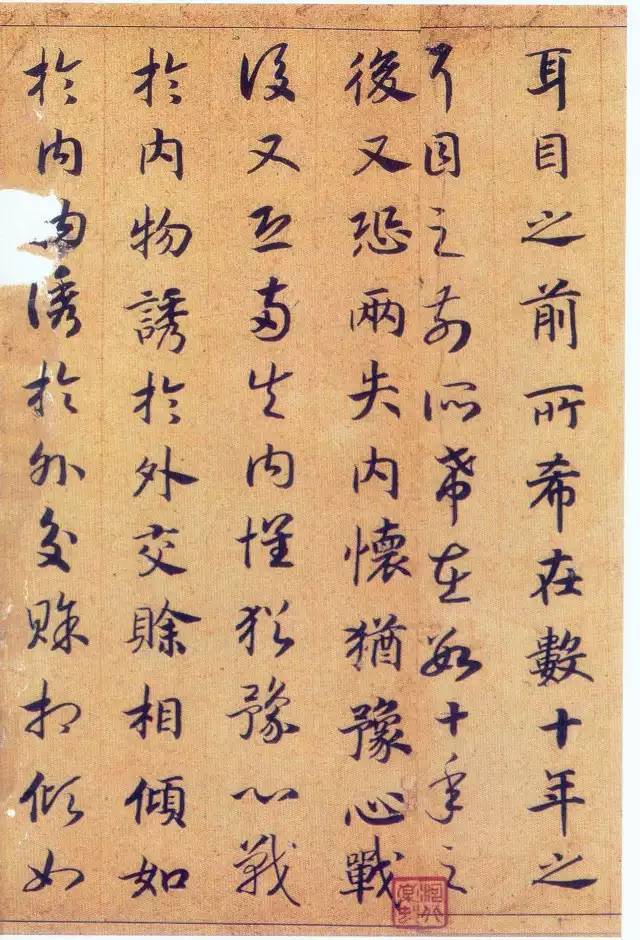 耳目之前所希在數十年之
耳目之前所希在數十年之
後又恐兩失内懷猶豫心戰
後又恐兩失内懷猶豫心戰
於内物誘於外交賒相傾如
於内物誘於外交賒相傾如